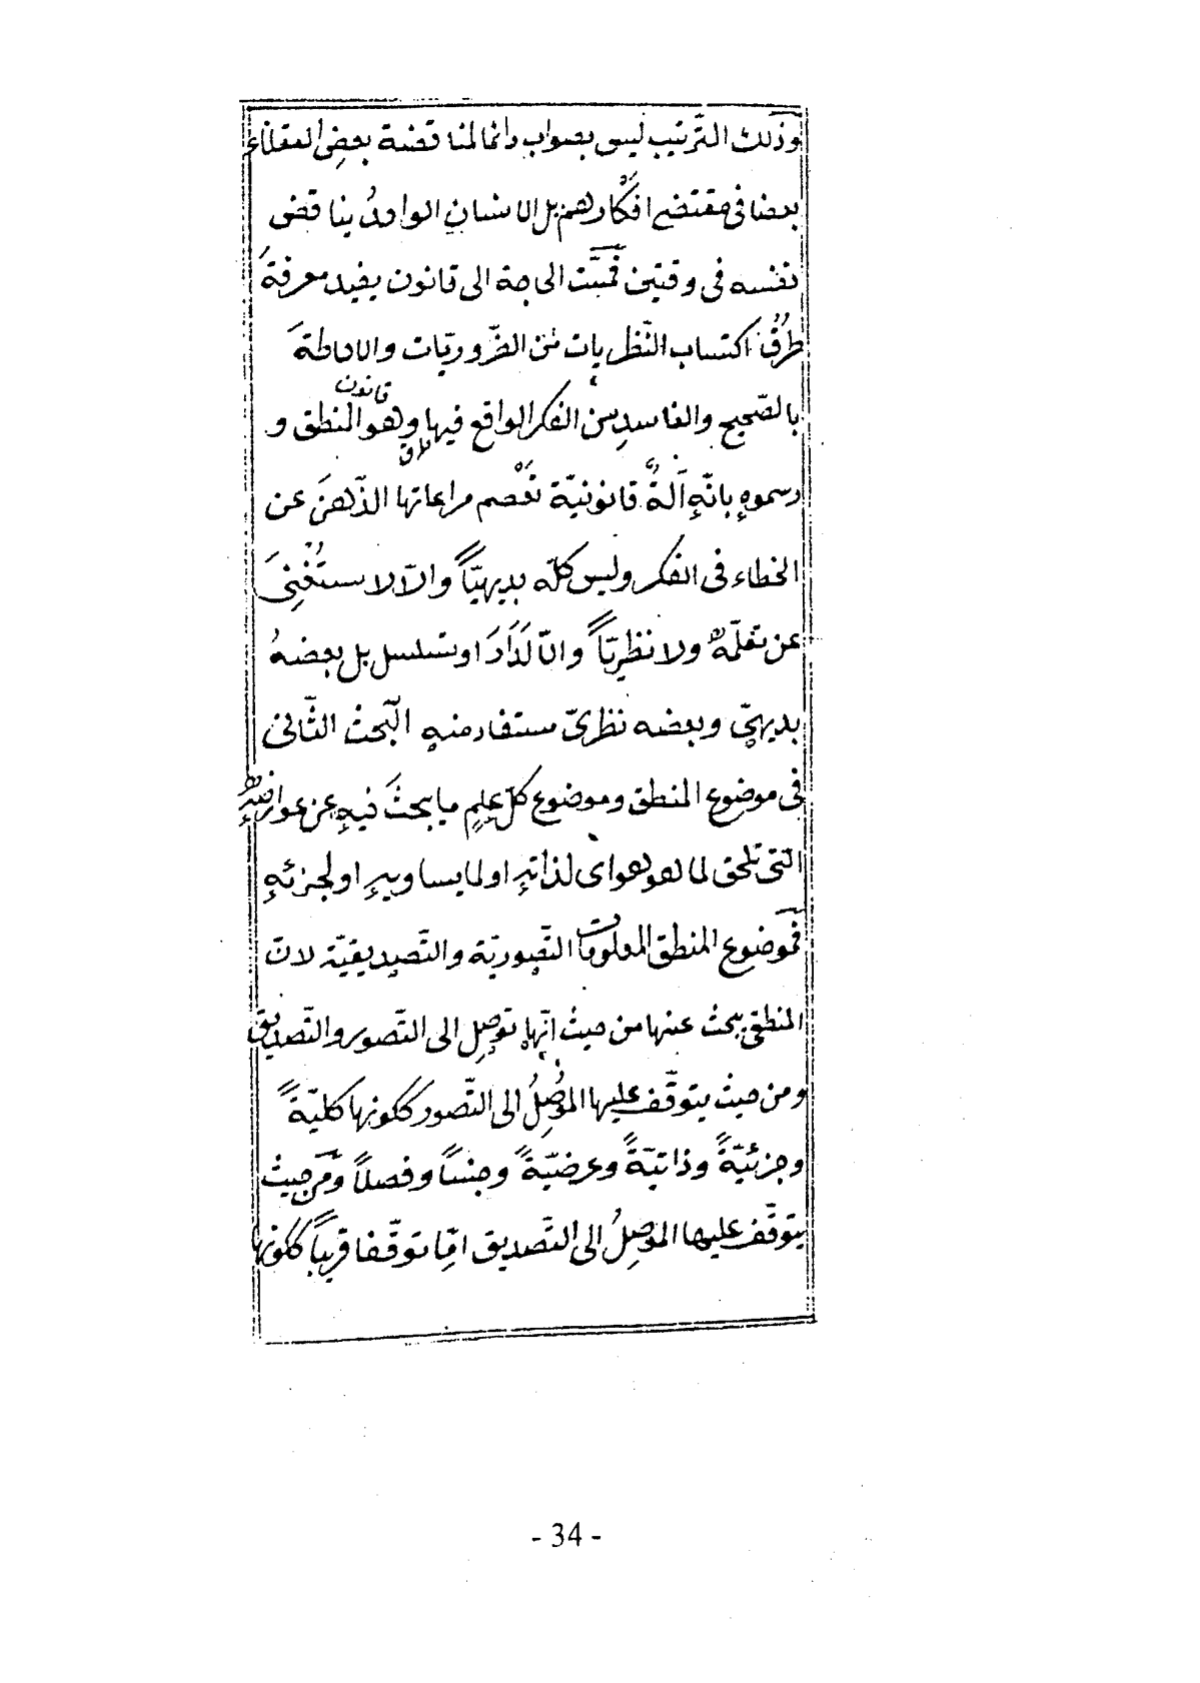 وذلك التّرتيب ليس بصواب دائما لمناقضة بعضِ العقلاء
بعضا فى مقتضى افكارهم بل الانسان الواحدُ يناقض
نفسه فى وقتين فمسّت الحاجة الى قانون يفيد معرفةَ
طرُقِ اكتساب النّظريات من الضّروريّات والاحاطةَ
قانون
بالصّحيح والفاسدِ من الفكر الواقع فيها وهو المنطق و
رسموه بانّهِ آلةٌ قانونيّة تعْصم مراعاتها الذّهنَ عن
الخطاء فى الفكر وليس كلّه بديهيّاً والّا لاستُغْنِىَ
عن تعلّمه ولا نظريّاً والّا لَدَارَ او تسلسل بل بعضهُ
بديهىّ وبعضه نظرىّ مستفاد منهِ البحث الثّانى
فى موضوع المنطق وموضوع كلّ علمٍ ما يبحثَ فيهِ عن عوارضهِ
الّتى تلحق لما هو هو اى لذاتهِ او لما يساويهِ او لجزئهِ
فموضوع المنطق المعلومات التّصوريّة والتّصديقيّة لانّ
المنطقى يبحث عنها من حيث انّها توصِل الى التّصور والتّصديق
ومن حيث يتوقّف عليها المُوْصِلُ الى التّصور ككونها كليّةً
وجزئيّةً وذاتيّةً وعرضيّةً وجنساً وفصلاً ومن حيث
يتوقّف عليها الموصِلُ الى التّصديق امّا توقّفا قريباً ككونها
- 34 -